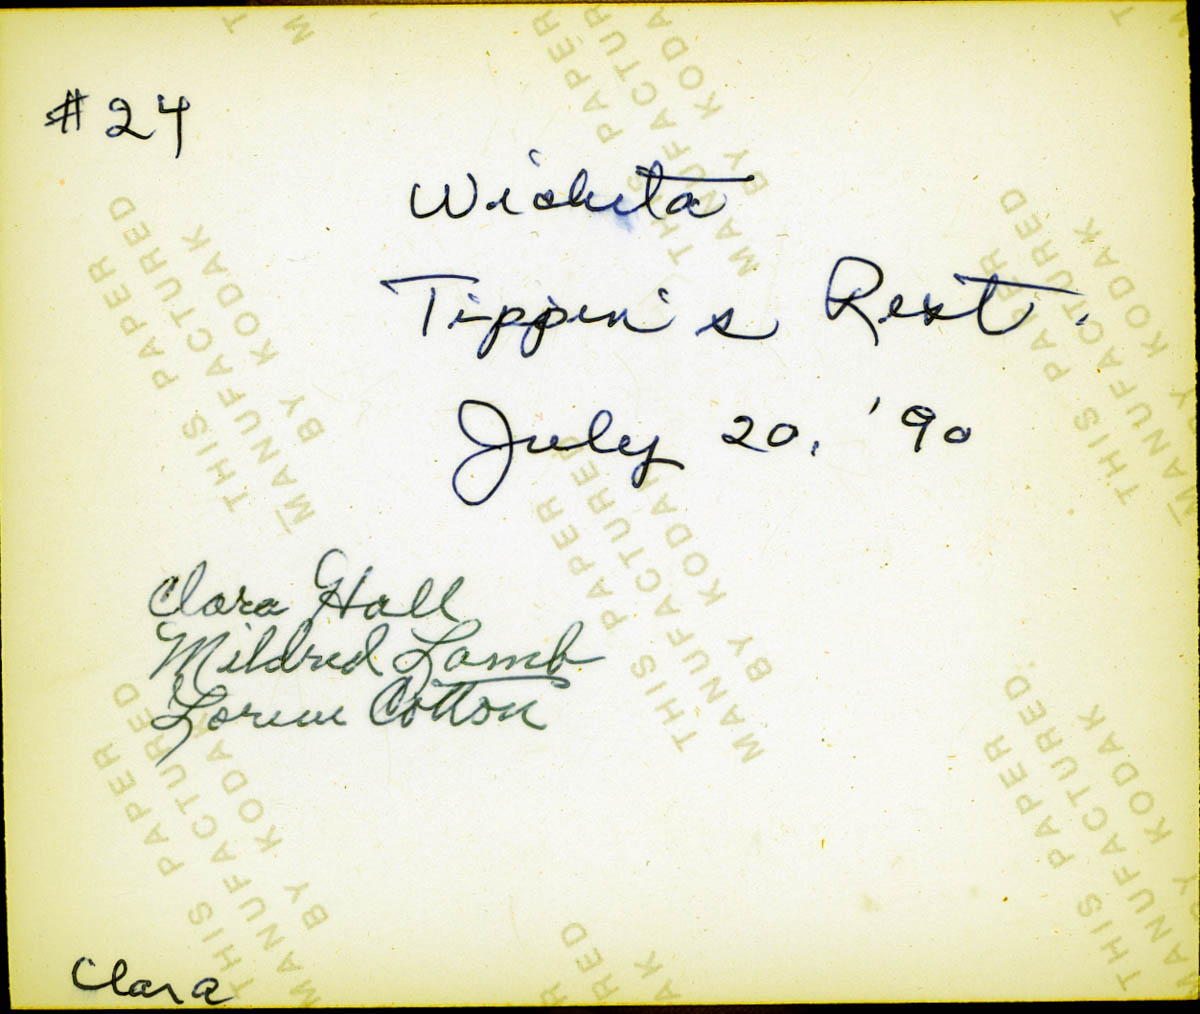 #24
Wichita
Tippin's Rest.
July 20, '90
Clara Hall
Mildred Lamb
Lorene Cotton
Clara
THIS PAPER
MANUFACTURED
BY KODAK